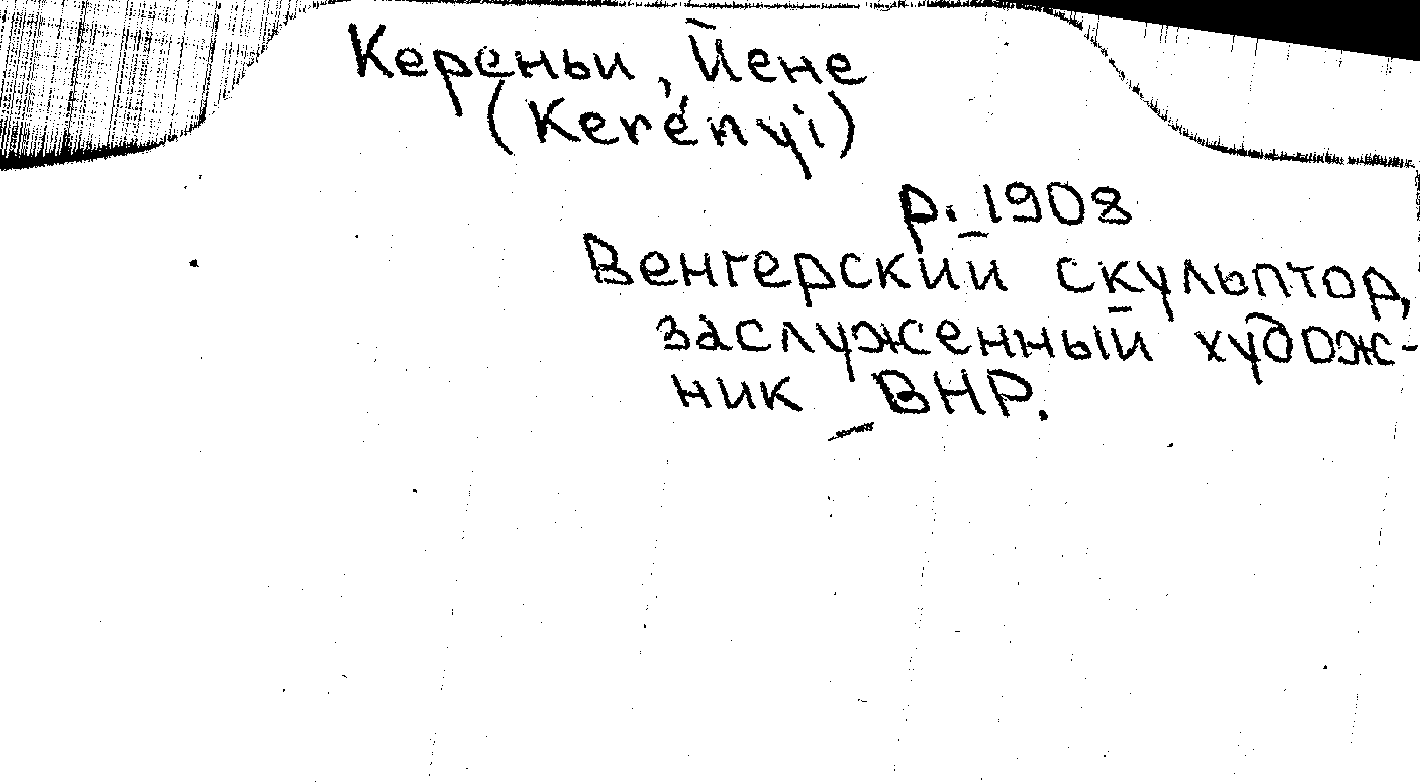 Кереньи, Йене
(Kerényi)
р. 1908
Венгерский скульптор,
заслуженный худож-
ник ВНР.